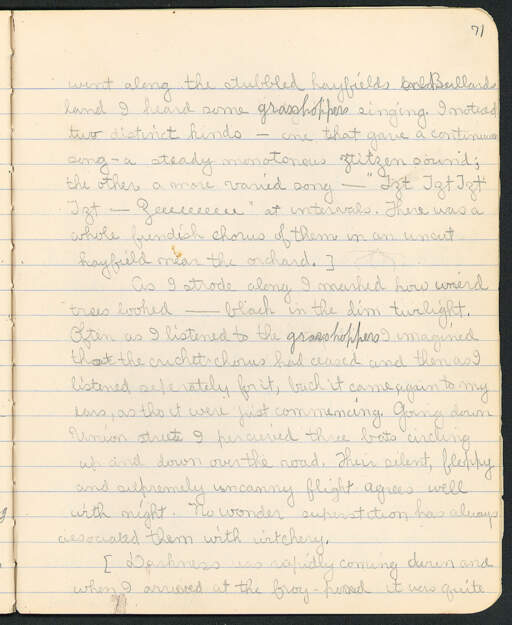 71
went along the stubbled hayfields on Bullards
land I heard some grasshoppers singing. I noticed
two distinct kinds — one that gave a continuous
song – a steady monotonous sound;
the other a more varied song — "Tzt Tzt Tzt
Tzt — Zeeeeeeeee" at intervals. There was a
whole fiendish chorus of them in an uncut
hayfield near the orchard. ]
As I strode along I marked how weird
trees looked — black in the dim twilight.
Often as I listened to the grasshoppers I imagined
that the cricket chorus had ceased and then as I
listened seperately for it, back it came again to my
ears, as tho it were just commencing. Going down
Union street I perceived three bats circling
up and down over the road. Their silent, floppy
and supremely uncanny flight agrees well
with night. No wonder superstition has always
associated them with witchery.
[ Darkness was rapidly coming down and
when I arrived at the frog-pond it was quite